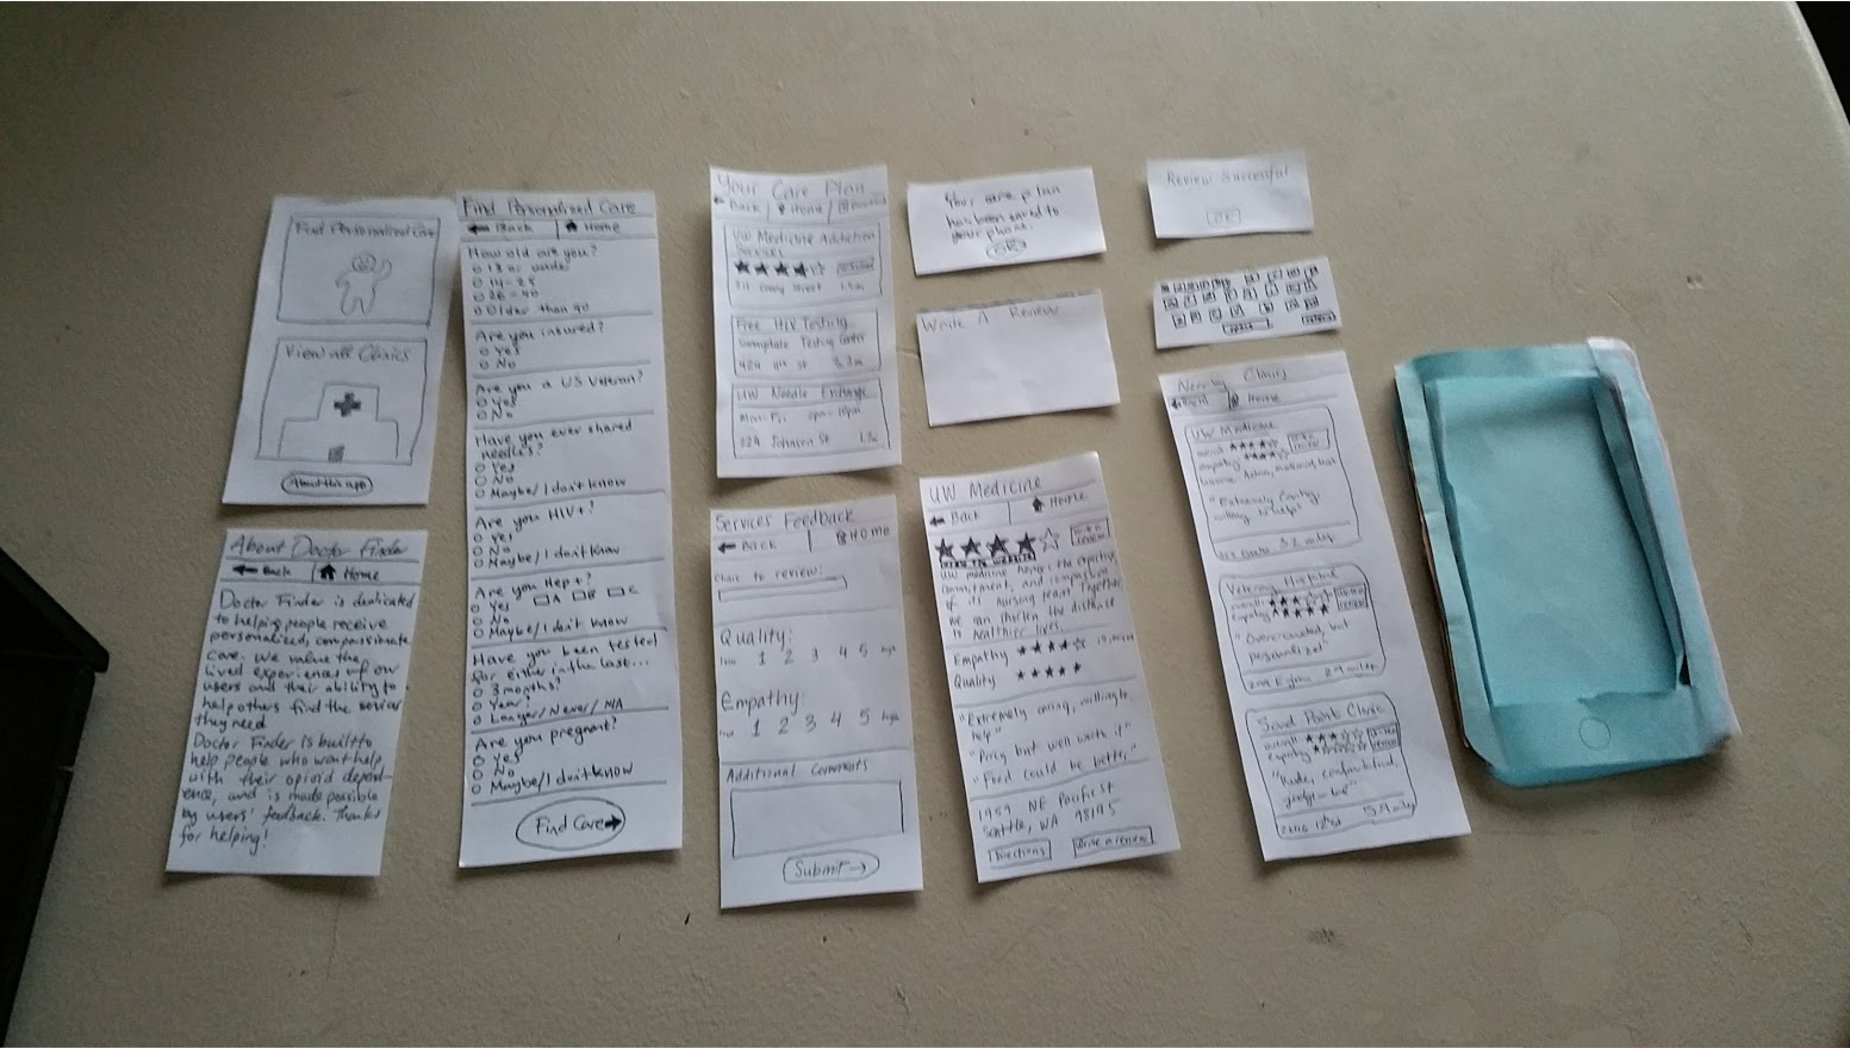 Find Personalized Care
View all Clinics
About this app
About Doctor Finder
Back
Home
Doctor Finder is dedicated
to helping people receive
personalized, compassionate
care. We value the
lived experiences of our
users and their ability to
help others find the service
they need
Doctor Finder is built to
help people who want help
with their opioid depend-
ence, and is made possible
by users' feedback. Thanks
for helping!
Find Personalized Care
Back
Home
How old are you?
13 or under
14-25
26-40
Older than 40
Are you insured?
Yes
No
Are you a US Veteran?
Yes
No
Have you ever shared
needles?
Yes
No
Maybe/I don't know
Are you HIV+?
Yes
No
Maybe/I don't know
Are you Hep+?
Yes A B C
No
Maybe/I don't know
Have you been tested
for either in the last...
3 months?
Year?
Longer/Never/NA
Are you pregnant?
Yes
No
Maybe/I don't know
Find Care
Your Care Plan
Back
Home
UW Medicine Addiction
Street
Free HIV Testing
Testing Center
UW Needle Exchange
Mon-Fri
Johnson St
Services Feedback
Back
Home
to review:
Quality:
low 1 2 3 4 5 high
Empathy:
1 2 3 4 5 high
Additional Comments
Submit
Your care plan
has been saved to
your phone.
OK
Write A Review
UW Medicine
Back
Home
UW medicine honors the expertise,
commitment, and compassion
of its nursing team. Together
we can shorten the distance
to healthier lives.
Empathy
Quality
"Extremely caring, willing to
help"
"Pricy but well worth it"
"Food could be better"
1959 NE Pacific St
Seattle, WA 98195
Directions
Write a review
Review Successful
OK
space
Nearby Clinics
Back
Home
UW Medicine
"Extremely caring,
willing to help"
Hospital
"Overcrowded, but
personalized"
Sand Point Clinic
overall
empathy
"Rude,